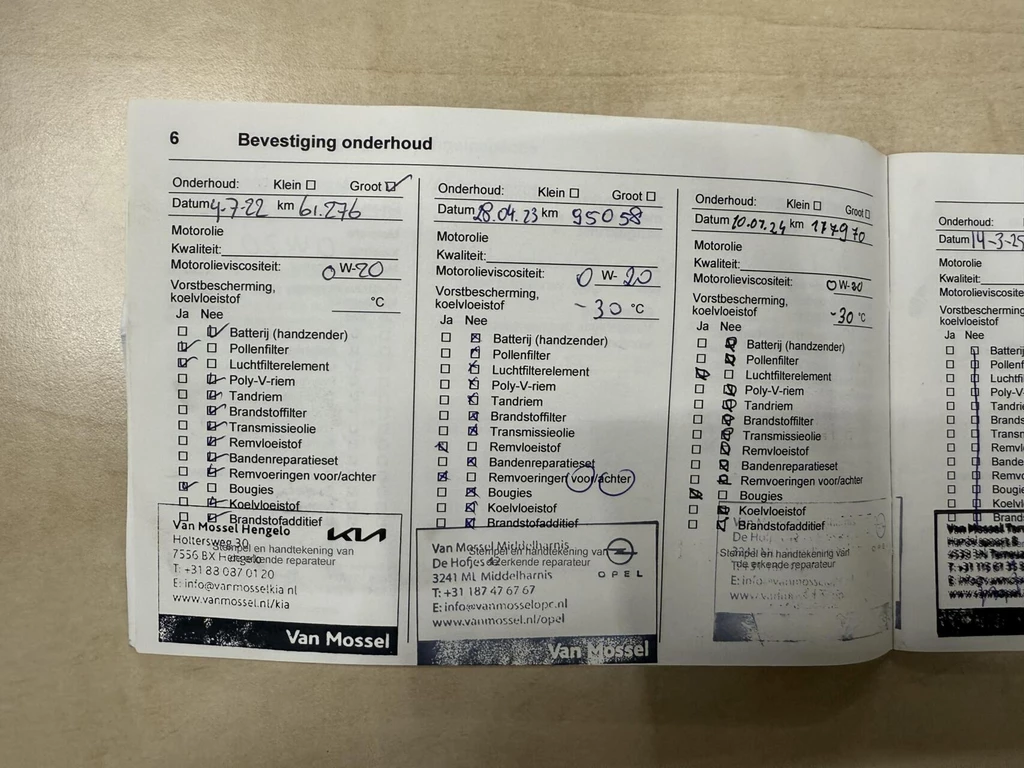 6 Bevestiging onderhoud
Onderhoud: Klein Groot
Datum 4-7-22 km 61.276
Motorolie
Kwaliteit:
Motorolieviscositeit: 0 W-20
Vorstbescherming,
koelvloeistof °C
Ja Nee
Batterij (handzender)
Pollenfilter
Luchtfilterelement
Poly-V-riem
Tandriem
Brandstoffilter
Transmissieolie
Remvloeistof
Bandenreparatieset
Remvoeringen voor/achter
Bougies
Koelvloeistof
Brandstofadditief
Stempel en handtekening van
de erkende reparateur
Van Mossel Hengelo
Holtersweg 30
7556 BX Hengelo
T: +31 88 087 01 20
E: info@vanmosselkia.nl
www.vanmossel.nl/kia
KIA
Van Mossel
Onderhoud: Klein Groot
Datum 28.04.23 km 95058
Motorolie
Kwaliteit:
Motorolieviscositeit: 0 W- 20
Vorstbescherming,
koelvloeistof -30 °C
Ja Nee
Batterij (handzender)
Pollenfilter
Luchtfilterelement
Poly-V-riem
Tandriem
Brandstoffilter
Transmissieolie
Remvloeistof
Bandenreparatieset
Remvoeringen voor/achter
Bougies
Koelvloeistof
Brandstofadditief
Stempel en handtekening van
de erkende reparateur
Van Mossel Middelharnis
De Hofjes 42
3241 ML Middelharnis
T: +31 187 47 67 67
E: info@vanmosselopc.nl
www.vanmossel.nl/opel
OPEL
Van Mossel
Onderhoud: Klein Groot
Datum 10.07.24 km 117970
Motorolie
Kwaliteit:
Motorolieviscositeit: 0W-20
Vorstbescherming,
koelvloeistof -30 °C
Ja Nee
Batterij (handzender)
Pollenfilter
Luchtfilterelement
Poly-V-riem
Tandriem
Brandstoffilter
Transmissieolie
Remvloeistof
Bandenreparatieset
Remvoeringen voor/achter
Bougies
Koelvloeistof
Brandstofadditief
Stempel en handtekening van
de erkende reparateur
Onderhoud:
Datum 14-3-25
Motorolie
Kwaliteit:
Motorolieviscosite
Vorstbescherming
koelvloeistof
Ja Nee
Batteri
Pollenf
Luchtfi
Poly-V
Tandri
Brands
Transm
Remvl
Banden
Remvo
Bougie
Koelvl
Brands
Van Mossel